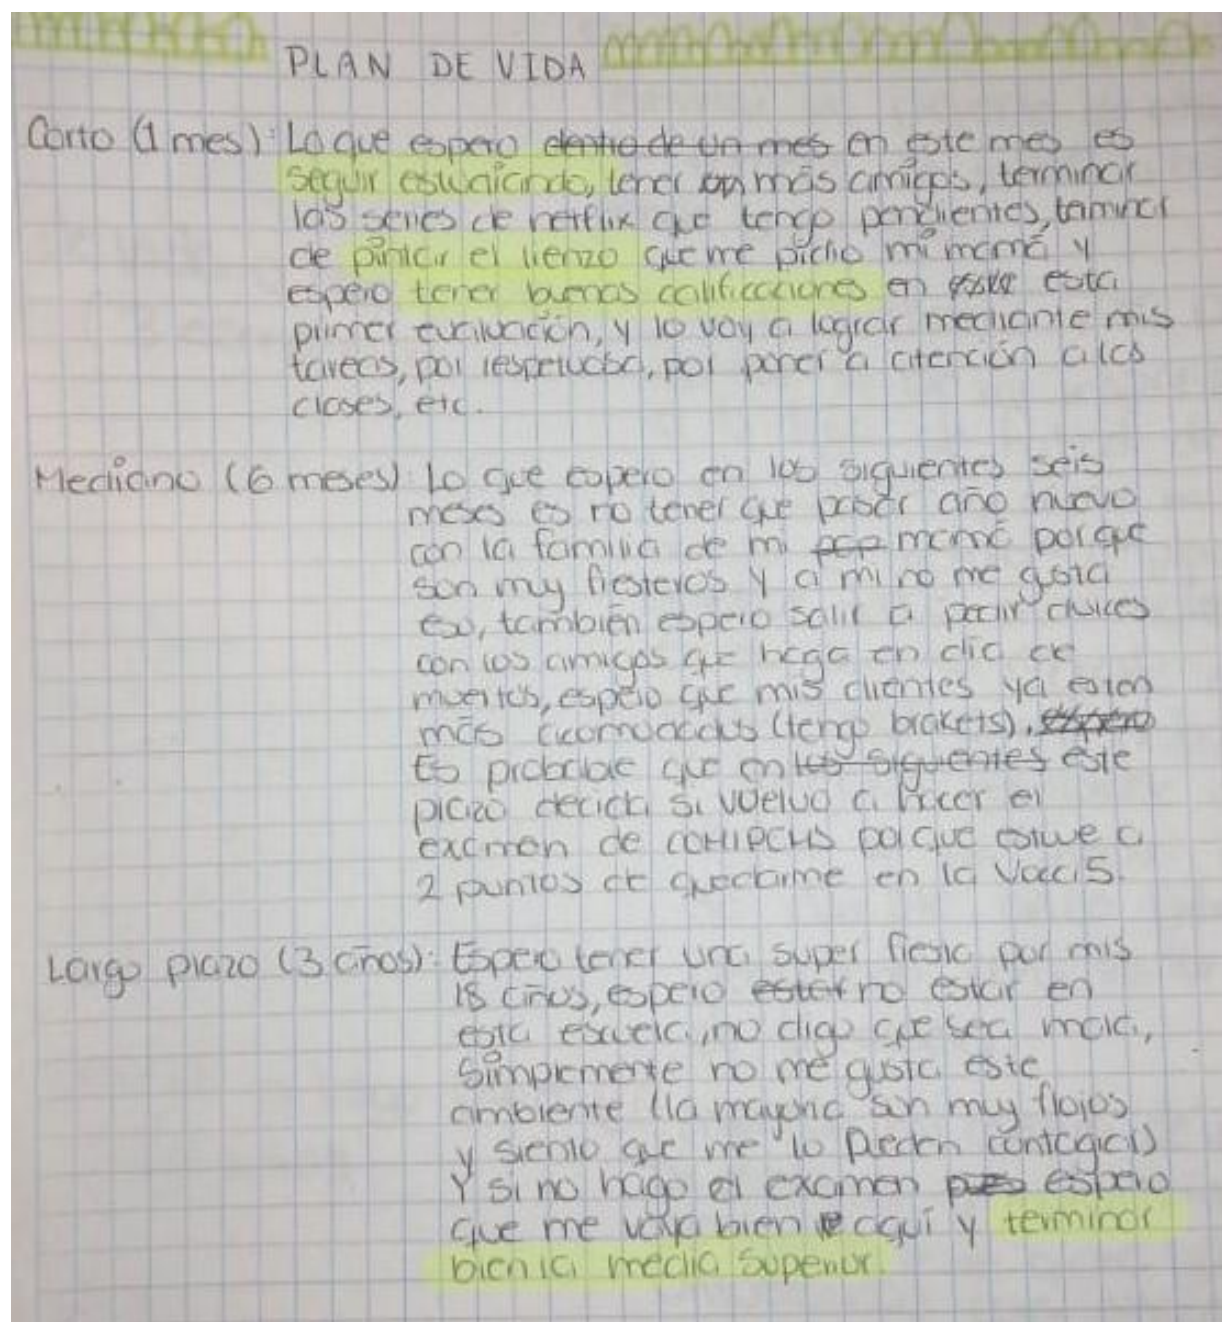 PLAN DE VIDA
Corto (1 mes): Lo que espero dentro de un mes en este mes es
seguir estudiando, tener más amigos, terminar
las series de netflix que tengo pendientes, terminar
de pintar el lienzo que me pidio mi mamá y
espero tener buenas calificaciones en esta
primer evaluación, y lo voy a lograr mediante mis
tareas, por poner a atención a las
clases, etc.
Mediano (6 meses): Lo que espero en los siguientes seis
meses es no tener que pasar año nuevo
con la familia de mi pap mamá porque
son muy fiesteros y a mi no me gusta
eso, también espero salir a pedir dulces
con los amigos que haga en dia de
muertos, espero que mis dientes ya esten
más acomodados (tengo brakets), espero
Es probable que en los siguientes este
plazo decida si vuelvo a hacer el
examen de COMIPEMS porque estuve a
2 puntos de quedarme en la Voca 5.
Largo plazo (3 años): Espero tener una super fiesta por mis
18 años, espero estar no estar en
esta escuela, no digo que sea mala,
simplemente no me gusta este
ambiente (la mayoria son muy flojos
y siento que me lo pueden contagiar)
Y si no hago el examen pues espero
que me vaya bien aquí y terminar
bien la media superior.